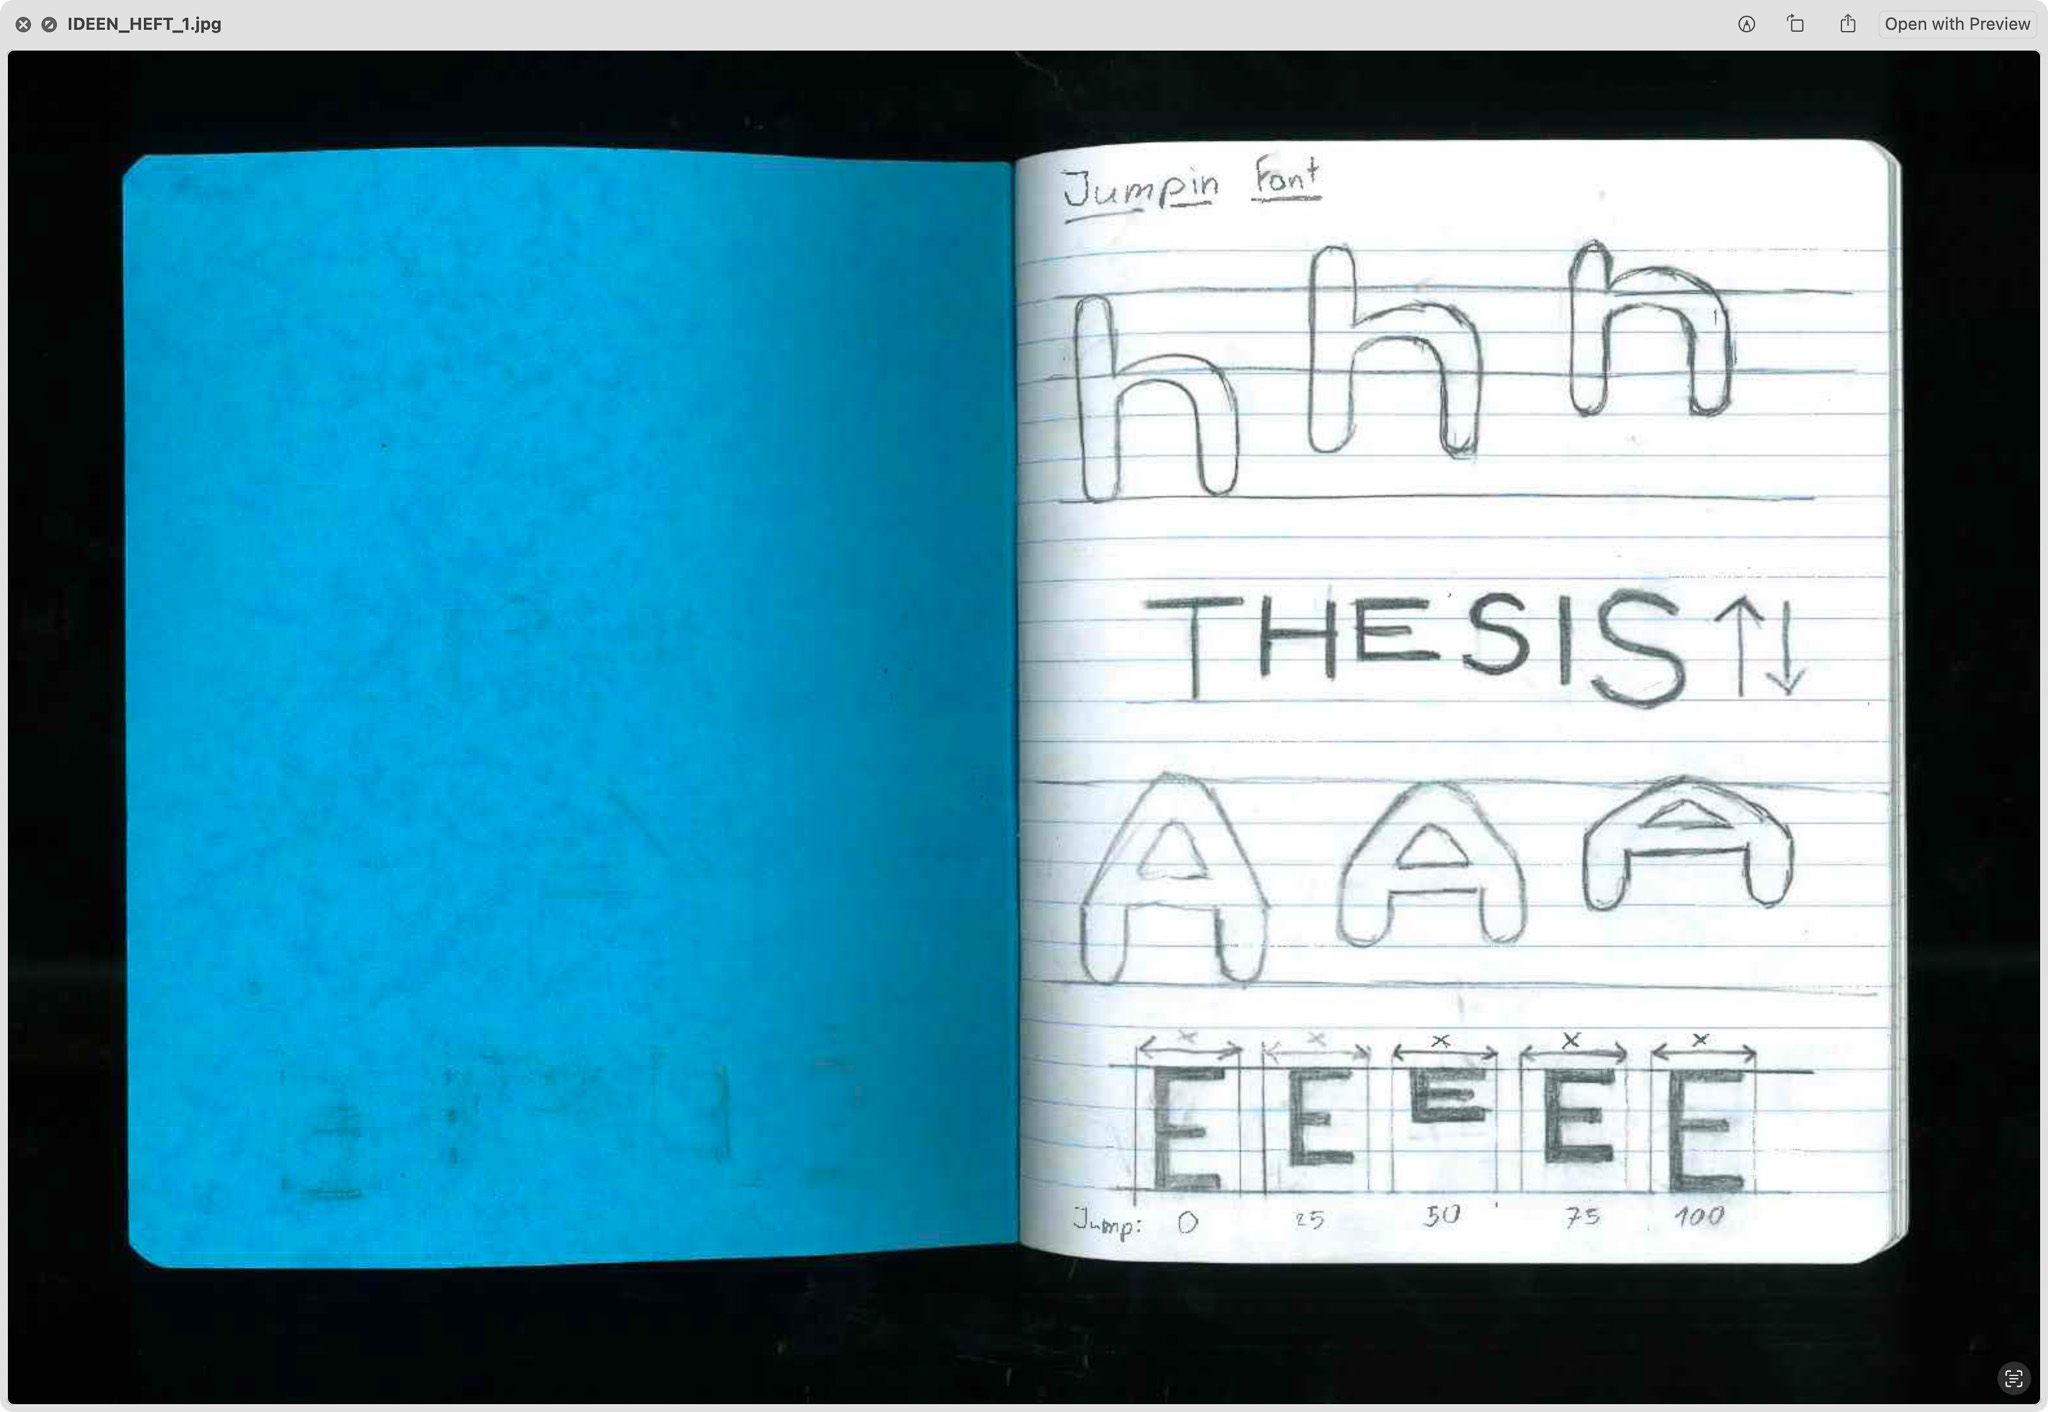 IDEEN_HEFT_1.jpg
Open with Preview
Jumpin Font
h h h
THESIS ↑↓
A A A
x x x x x
E E E E E
Jump: 0 25 50 75 100